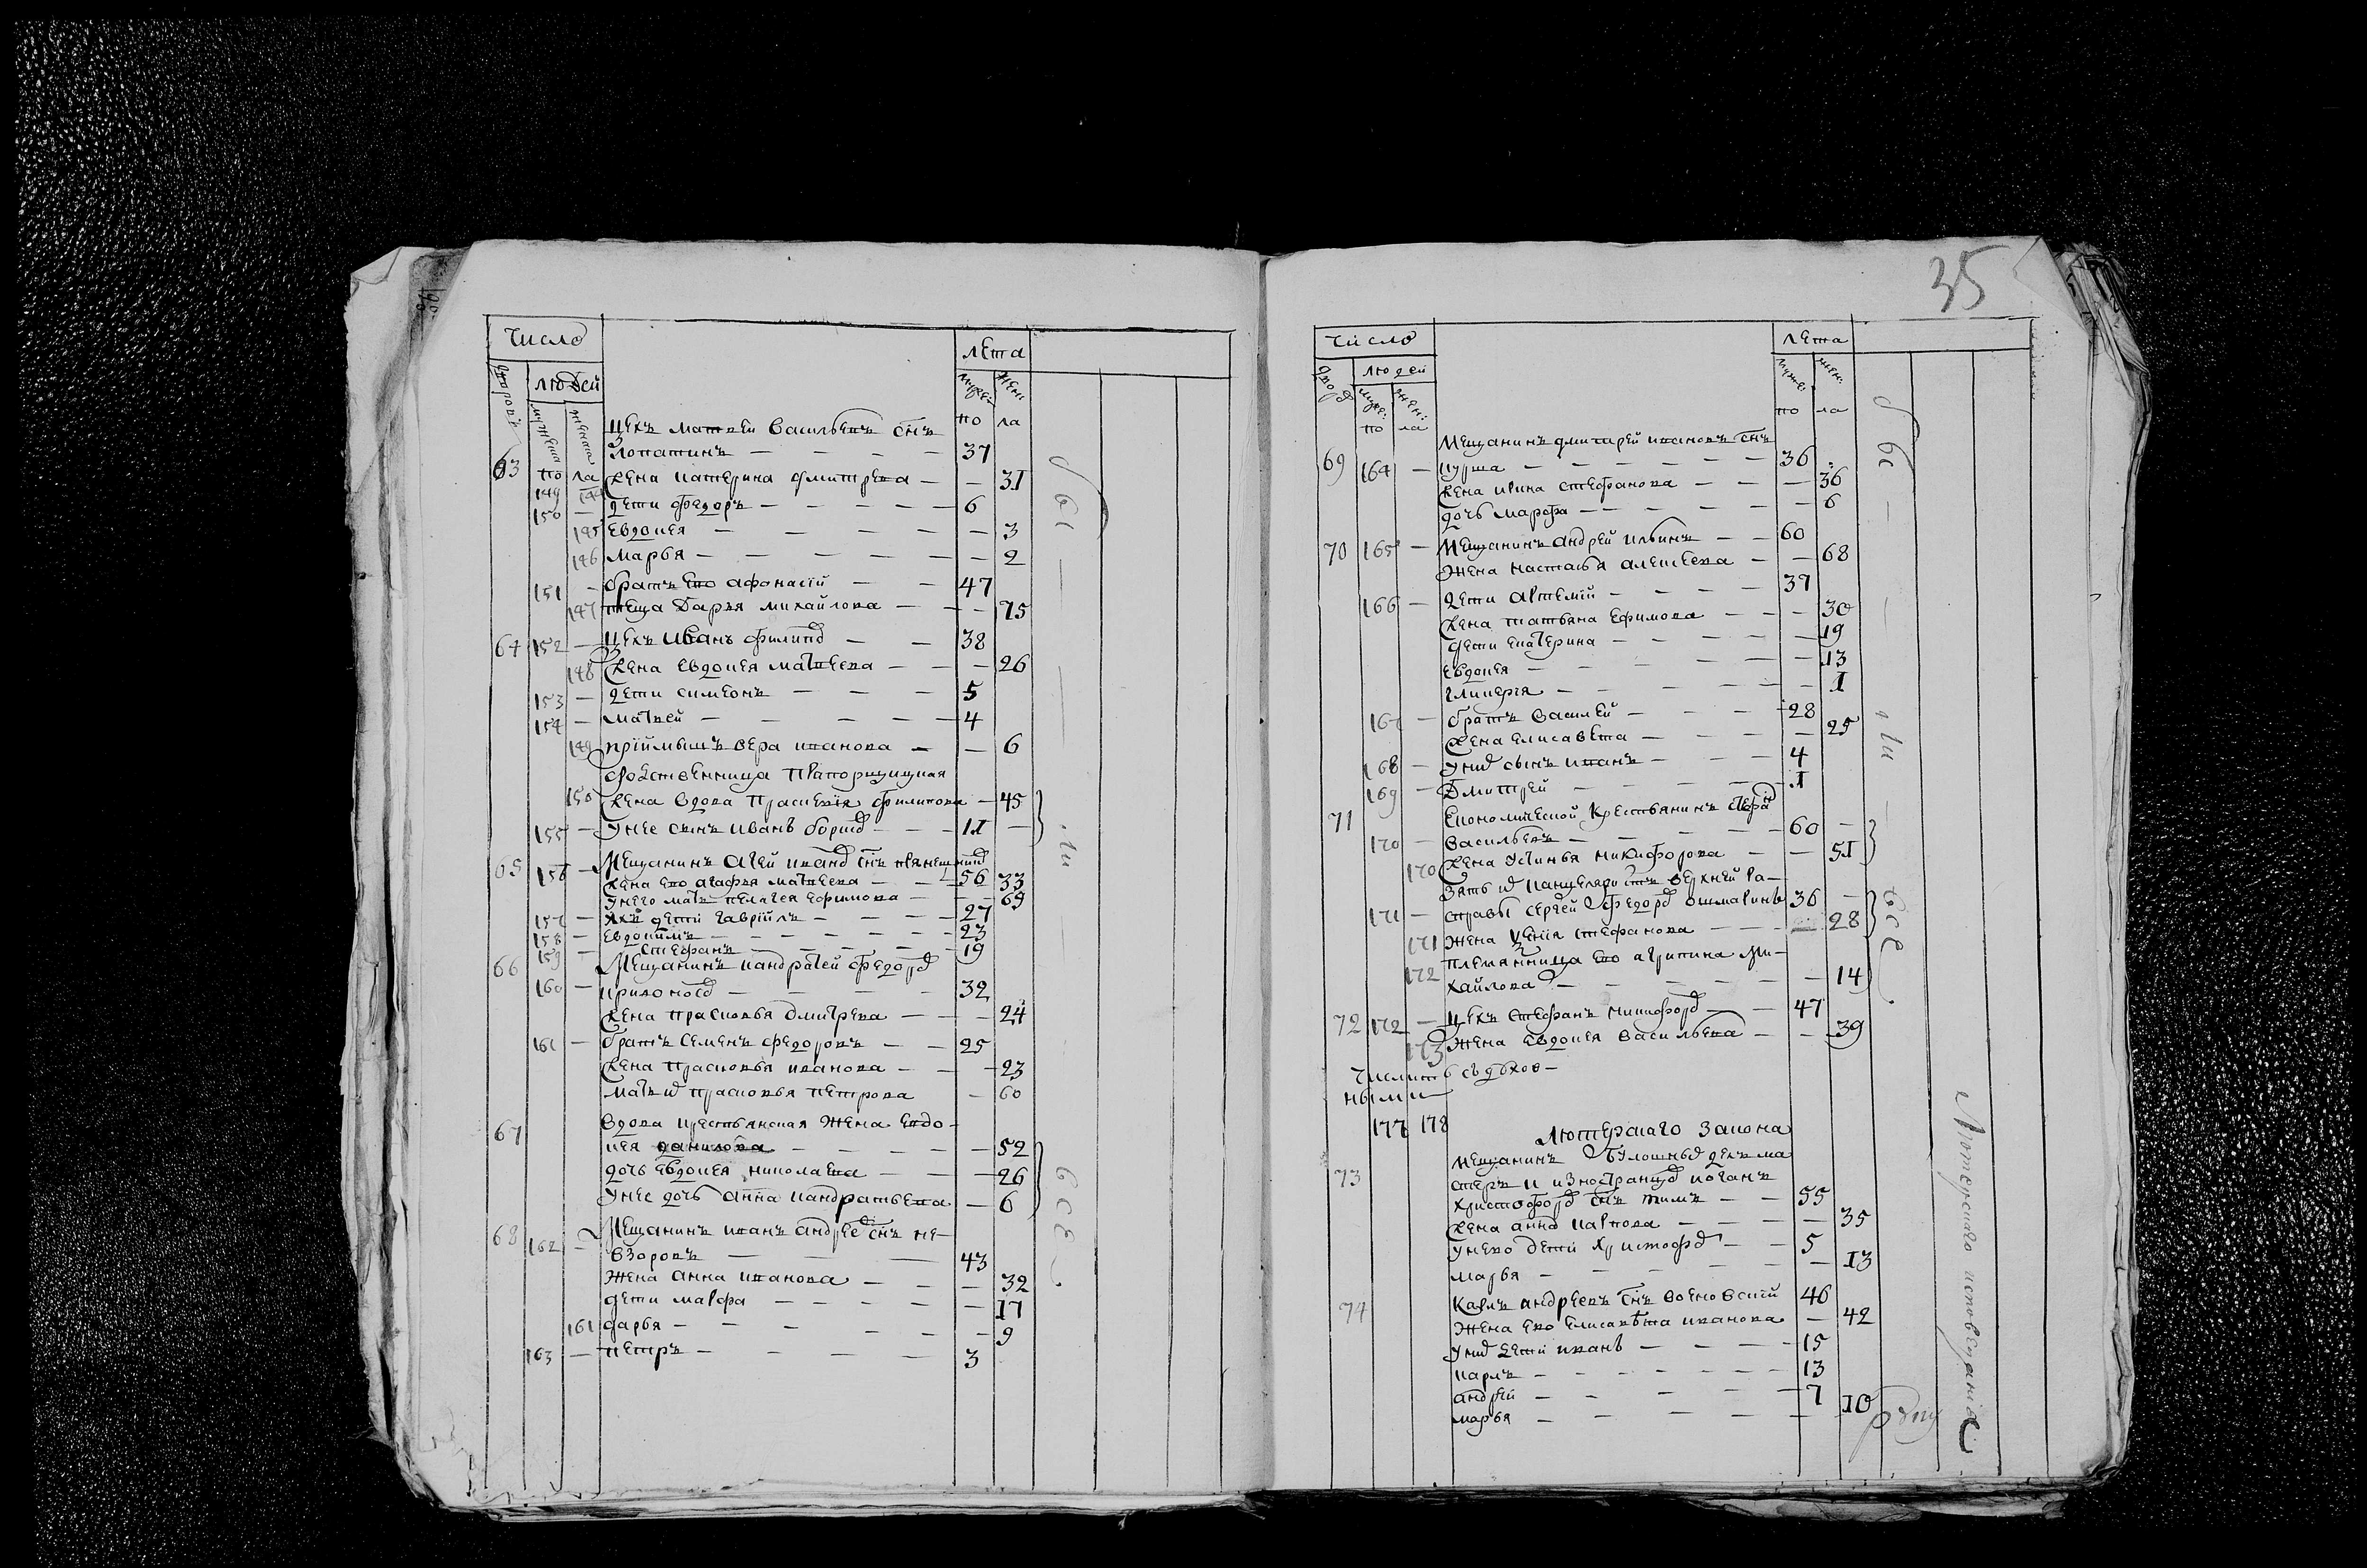 Число
лѣта
людей
мужеска
женска
по ла
по ла
Цехъ Матвей Васильевъ снъ
63 Лопатинъ — 37
149 144 Жена Катерина Дмитрева — 31
150 — дети Федоръ — 6
145 Евдокея — 3
146 Марья — 2
151 — братъ ево Афонасiй — 47
147 теща Дарья Михайлова — 75
64 152 — Цехъ Иванъ Филипо — 38
148 Жена Евдокея Матвеева — 26
153 — дети Симеонъ — 5
154 — Матвей — 4
149 прiймышъ Вера Иванова — 6
родственница
150 жена вдова Праскевiя Филипова — 45
155 — у нее сынъ Иванъ — 11 —
65 156 — Мещанинъ Агей снъ 56
Жена ево Агафья Матвеева — 33
у него мать Пелагея Ефимова — 69
157 — дети Гаврiилъ — 27
158 — Евдокимъ — 23
159 — Стефанъ — 19
66 Мещанинъ Кандратей Федоро
160 — Кривоносо — 32
Жена Прасковья Дмитрева — 24
161 — братъ Семенъ Федоровъ — 25
Жена Прасковья Иванова — 23
мать Прасковья Петрова — 60
67 Вдова крестьянская жена Евдо-
кея Данилова — 52
дочь Евдокея Николаева — 26
у нее дочь Анна Кандратьева — 6
68 162 — Мещанинъ Иванъ Андрее снъ Не-
взоровъ — 43
Жена Анна Иванова — 32
дети Марфа — 17
161 Дарья — 9
163 — Петръ — 3
35
Число
лѣта
людей
по ла
по ла
Мещанинъ Дмитрей Ивановъ снъ
69 164 — 36
Жена Ирина Стефанова — 36
дочь Марфа — 6
70 165 — Мещанинъ Андрей Ильинъ — 60
Жена Настасья Алексеева — 68
166 — дети Артемiй — 37
Жена Татьяна Ефимова — 30
дети Екатерина — 19
Евдокея — 13
Гликерiя — 1
167 — братъ Василей — 28
Жена Елисавета — 25
168 — сынъ Иванъ — 4
169 — Дмитрей — 1
71 Економической крестьянинъ
170 — Васильевъ — 60 —
170 Жена Устинья Никифорова — 51
Зять верхней ра-
171 — справы Сергей Федоро 36 —
171 Жена Стефанова — 28
племянница ево Агрипина Ми-
172 хайлова — 14
72 172 — Цехъ Стефанъ Никифоро — 47
173 Жена Евдокея Васильева — 39
числитъ съ духов-
ными
177 178
Лютерскаго закона
73 Мещанинъ
стеръ и изностранцо Иоганъ
Христофоро снъ — 55
Жена Анна Карпова — 35
у нево дети Христофо — 5
Марья — 13
74 Карлъ Андреевъ снъ 46
Жена ево Елисавѣта Иванова — 42
дети Иванъ — 15
Карлъ — 13
Андрей — 7
Марья — 10
Лютерскаго исповеданiя